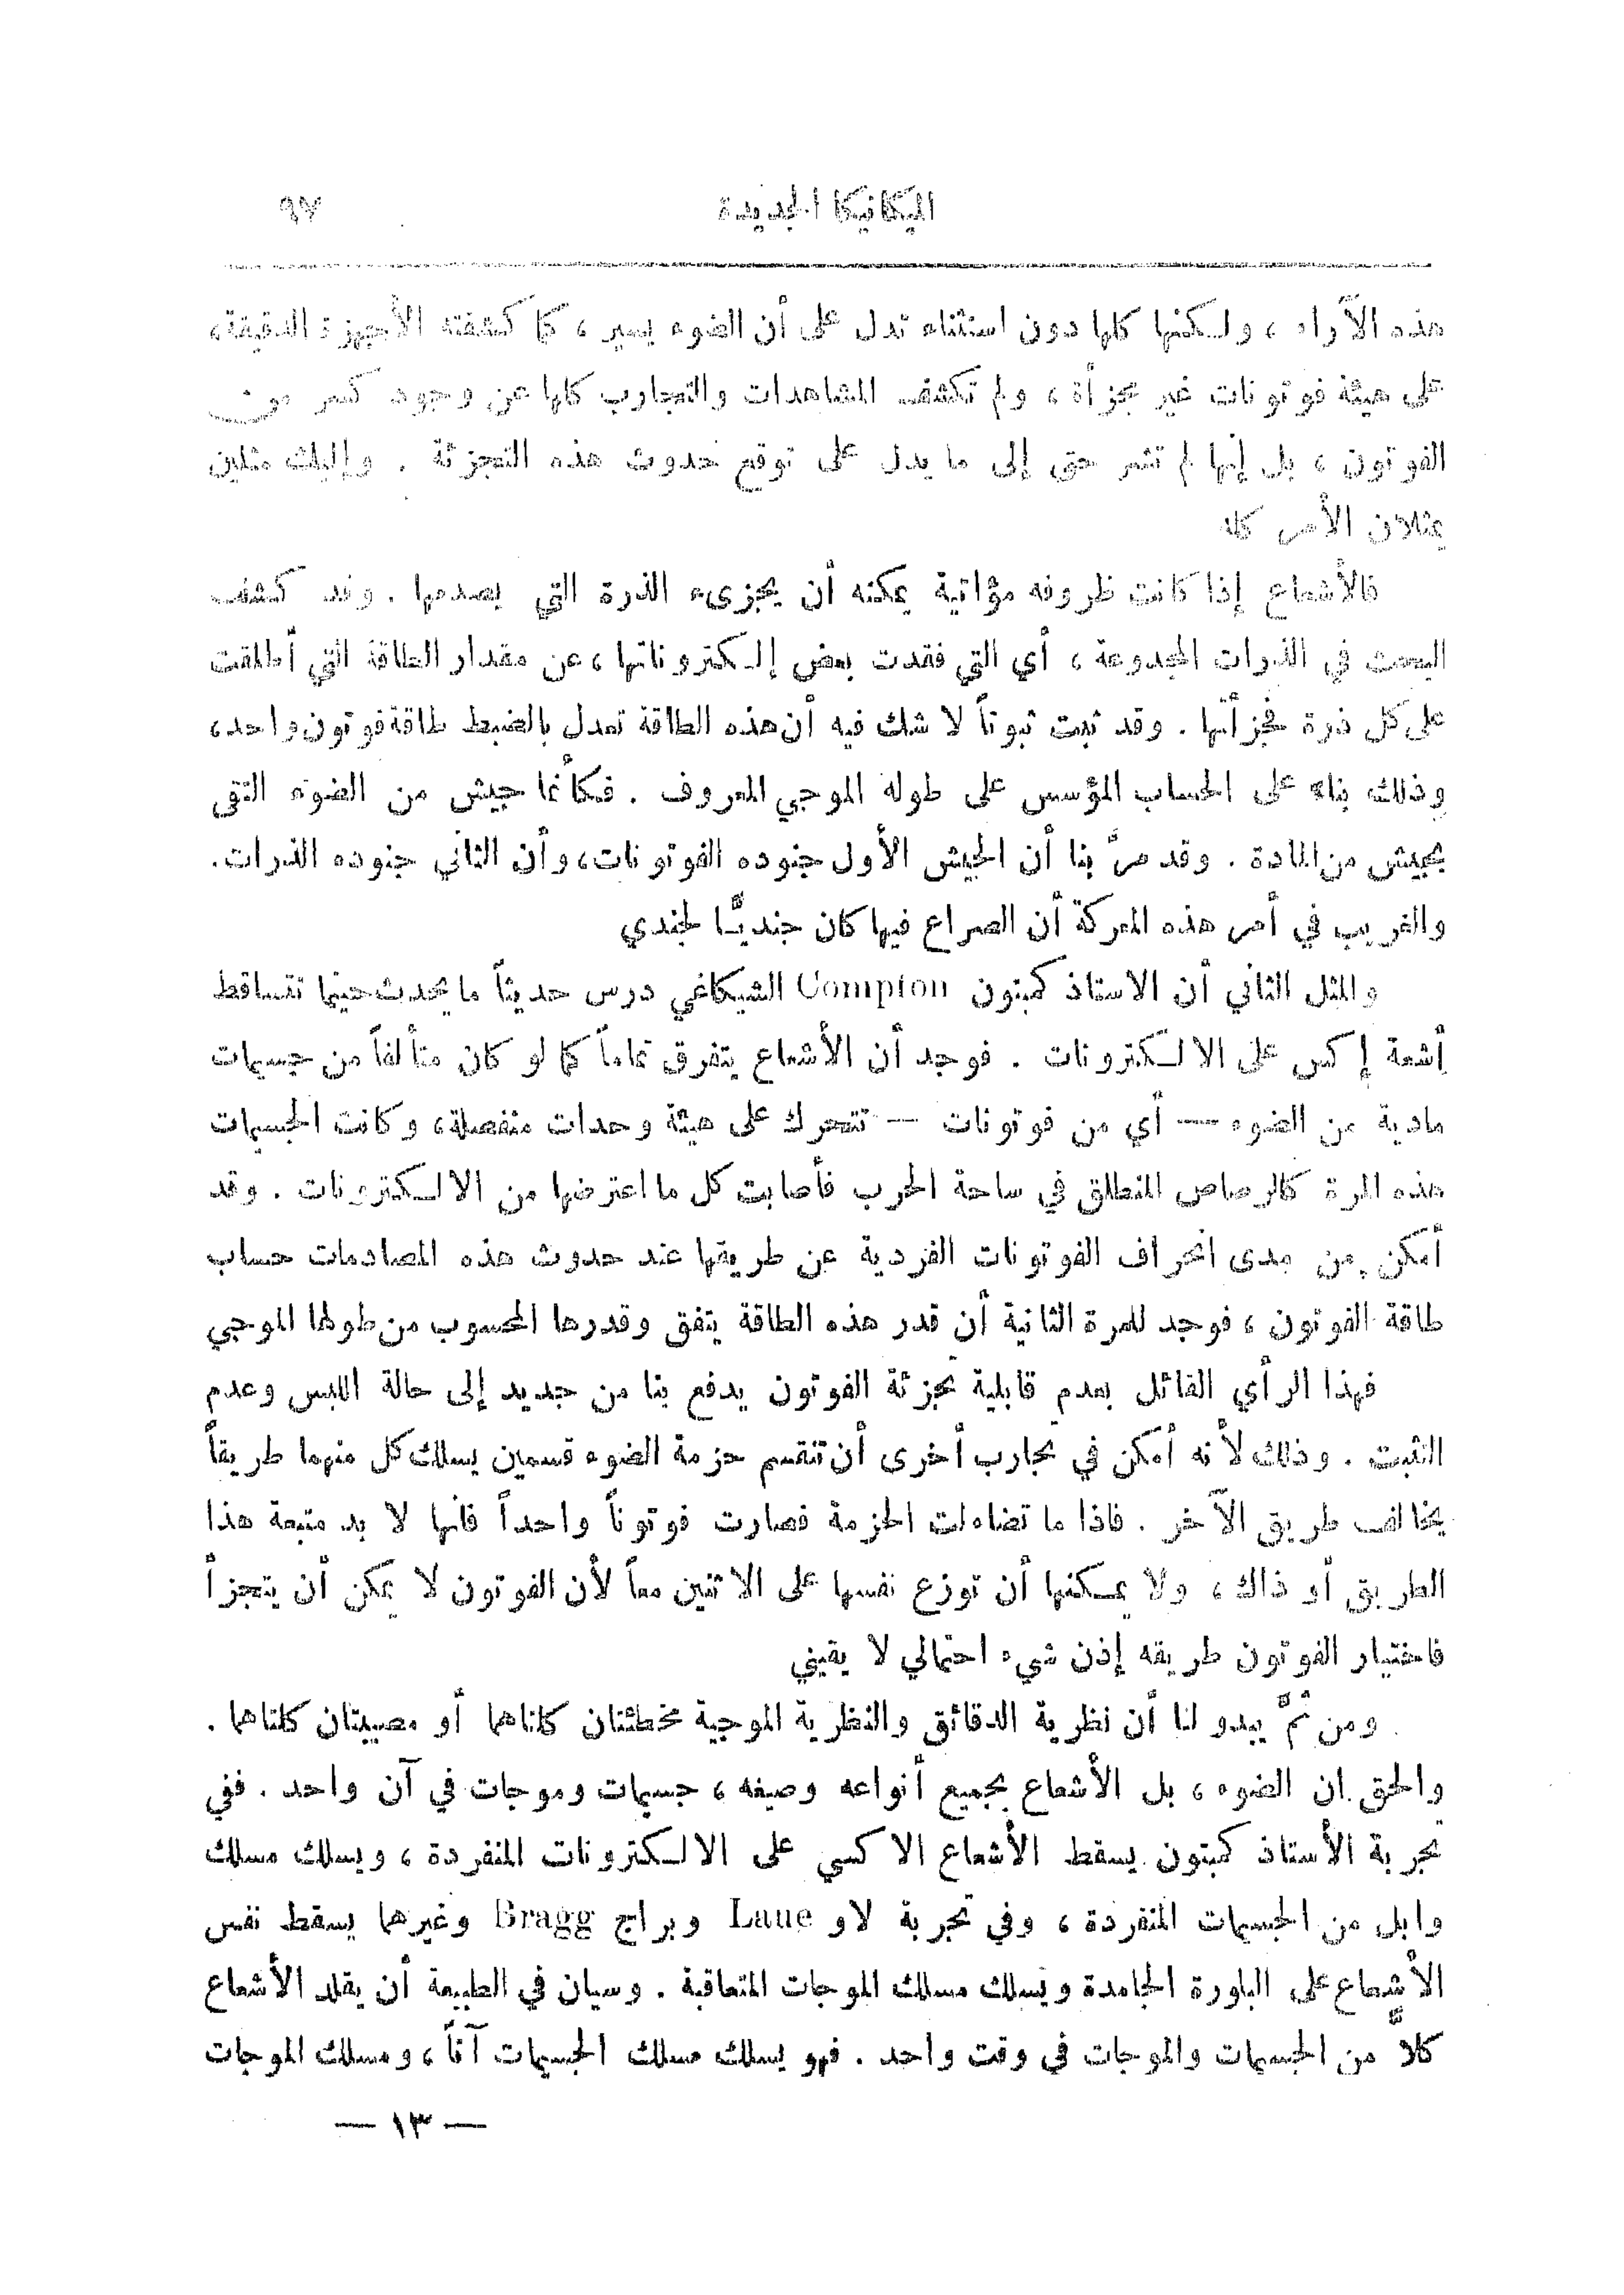 الميكانيكا الجديدة ٩٧
هذه الآراء ، ولكنها كلها دون استثناء تدل على أن الضوء يسير ، كما كشفته الأجهزة الدقيقة،
على هيئة فوتونات غير مجزأة ، ولم تكشف المشاهدات والتجارب كلها عن وجود كسر من
الفوتون ، بل إنها لم تشر حتى إلى ما يدل على توقع حدوث هذه التجزئة . وإليك مثلين
يمثلان الأمر كله
فالأشعاع إذا كانت ظروفه مؤاتية يمكنه أن يجزىء الذرة التي يصدمها . وقد كشف
البحث في الذرات المجدوعة ، أي التي فقدت بعض إلكتروناتها ، عن مقدار الطاقة التي أطلقت
على كل ذرة فجزأتها . وقد ثبت ثبوتاً لا شك فيه أن هذه الطاقة تعدل بالضبط طاقة فوتون واحد،
وذلك بناء على الحساب المؤسس على طوله الموجي المعروف . فكأنما جيش من الضوء التقى
بجيش من المادة . وقد مرَّ بنا أن الجيش الأول جنوده الفوتونات، وأن الثاني جنوده الذرات.
والغريب في أمر هذه المعركة أن الصراع فيها كان جنديًّا لجندي
والمثل الثاني أن الاستاذ كمبتون Compton الشيكاغي درس حديثاً ما يحدث حينما تتساقط
أشعة إكس على الالكترونات . فوجد أن الأشعاع يتفرق تماماً كما لو كان متألفاً من جسيمات
مادية من الضوء — أي من فوتونات — تتحرك على هيئة وحدات منفصلة، وكانت الجسيمات
هذه المرة كالرصاص المنطلق في ساحة الحرب فأصابت كل ما اعترضها من الالكترونات . وقد
أمكن من مدى انحراف الفوتونات الفردية عن طريقها عند حدوث هذه المصادمات حساب
طاقة الفوتون ، فوجد للمرة الثانية أن قدر هذه الطاقة يتفق وقدرها المحسوب من طولها الموجي
فهذا الرأي القائل بعدم قابلية تجزئة الفوتون يدفع بنا من جديد إلى حالة اللبس وعدم
التثبت . وذلك لأنه أمكن في تجارب أخرى أن تنقسم حزمة الضوء قسمين يسلك كل منهما طريقاً
يخالف طريق الآخر . فاذا ما تضاءلت الحزمة فصارت فوتوناً واحداً فأنها لا بد متبعة هذا
الطريق أو ذاك ، ولا يمكنها أن توزع نفسها على الاثنين معاً لأن الفوتون لا يمكن أن يتجزأ
فاختيار الفوتون طريقه إذن شيء احتمالي لا يقيني
ومن ثمَّ يبدو لنا أن نظرية الدقائق والنظرية الموجية مخطئتان كلتاهما أو مصيبتان كلتاهما .
والحق ان الضوء ، بل الأشعاع بجميع أنواعه وصيغه ، جسيمات وموجات في آن واحد . ففي
تجربة الأستاذ كمبتون يسقط الأشعاع الاكسي على الالكترونات المنفردة ، ويسلك مسلك
وابل من الجسيمات المنفردة ، وفي تجربة لاو Laue وبراج Bragg وغيرهما يسقط نفس
الأشعاع على البلورة الجامدة ويسلك مسلك الموجات المتعاقبة . وسيان في الطبيعة أن يقلد الأشعاع
كلاًّ من الجسيمات والموجات في وقت واحد . فهو يسلك مسلك الجسيمات آناً ، ومسلك الموجات
— ١٣ —